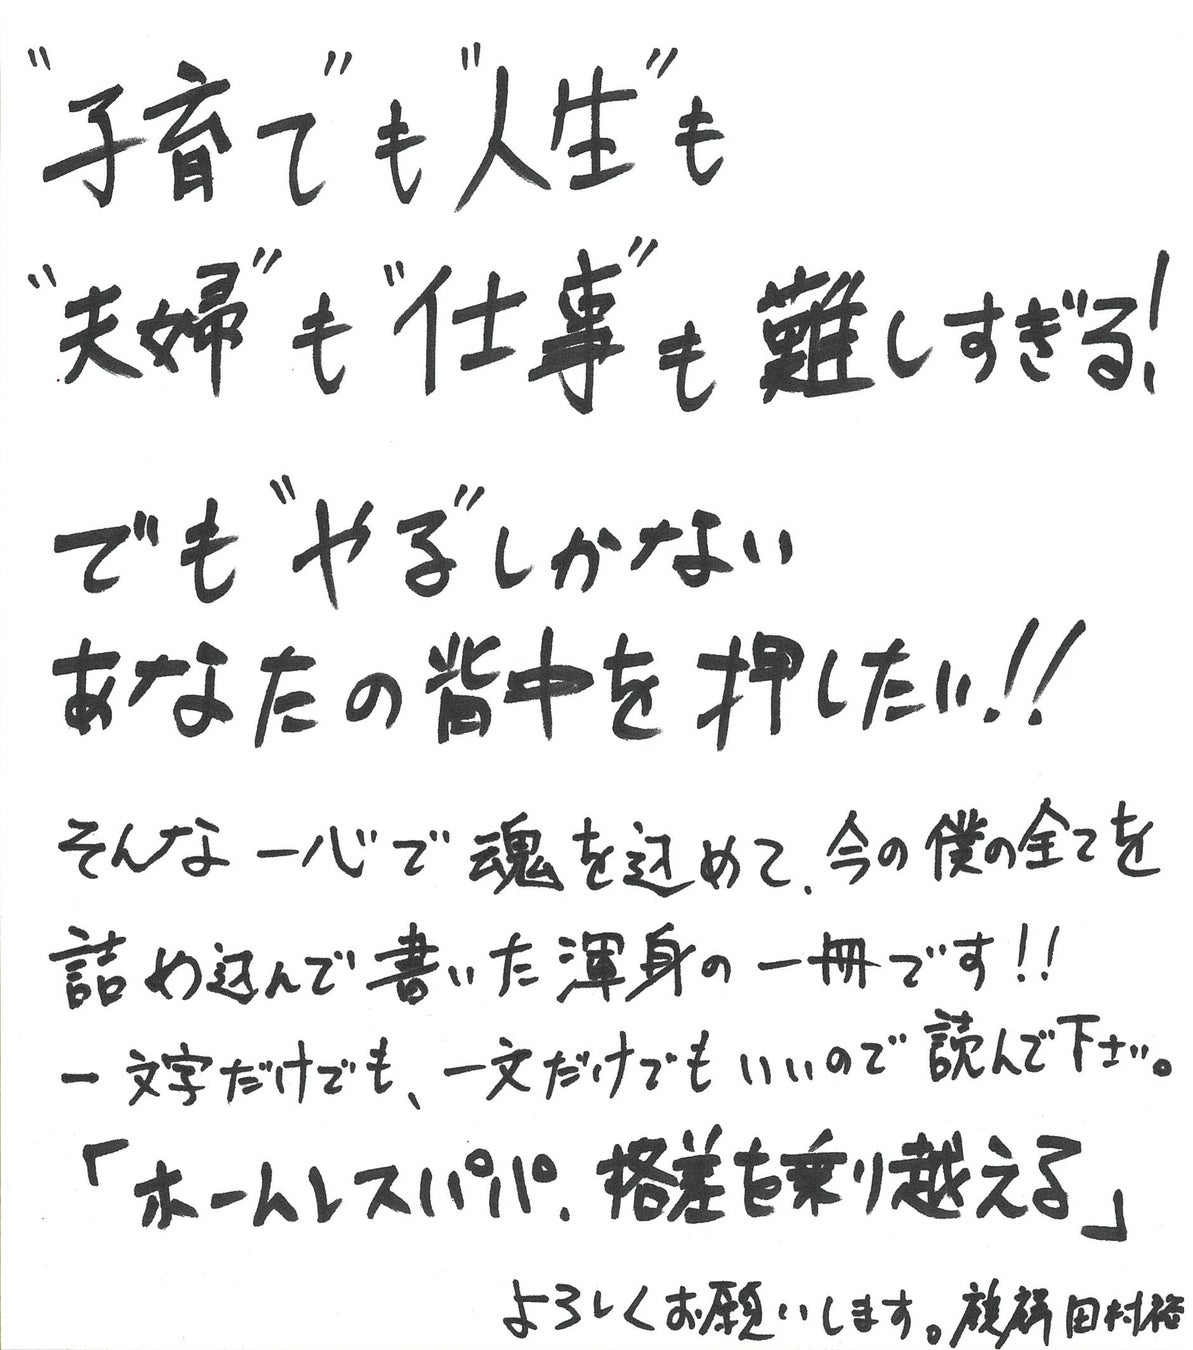 "子育て"も"人生"も
"夫婦"も"仕事"も難しすぎる!
でも"やる"しかない
あなたの背中を押したい!!
そんな一心で魂を込めて、今の僕の全てを
詰め込んで書いた渾身の一冊です!!
一文字だけでも、一文だけでもいいので読んで下さい。
「ホームレスパパ、格差を乗り越える」
よろしくお願いします。麒麟田村裕